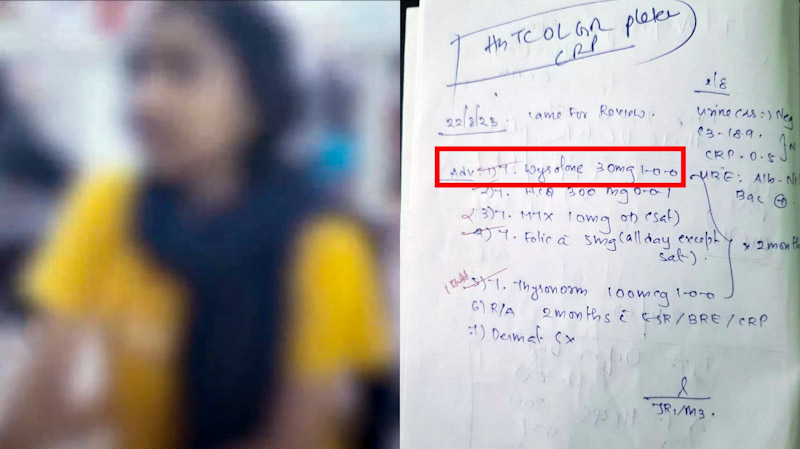 CRP
22/8/23. Came For Review.
Adv 1) T. Wysolone 30mg 1-0-0
2) T. HCQ 300 mg 0-0-1
3) T. MTX 10mg OD (sat)
4) T. Folic a 5mg (all day except
sat).
5) T. Thyronorm 100mcg 1-0-0
6) R/A 2 months c ESR/BRE/CRP
7) Dermat
JR1/M3.
2/8
Urine Neg
C3-189.
CRP-0.5
URE: Alb-Nil
Bac +
x 2 months